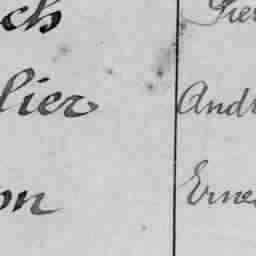 ch Pier
lier Andr
on Ernes